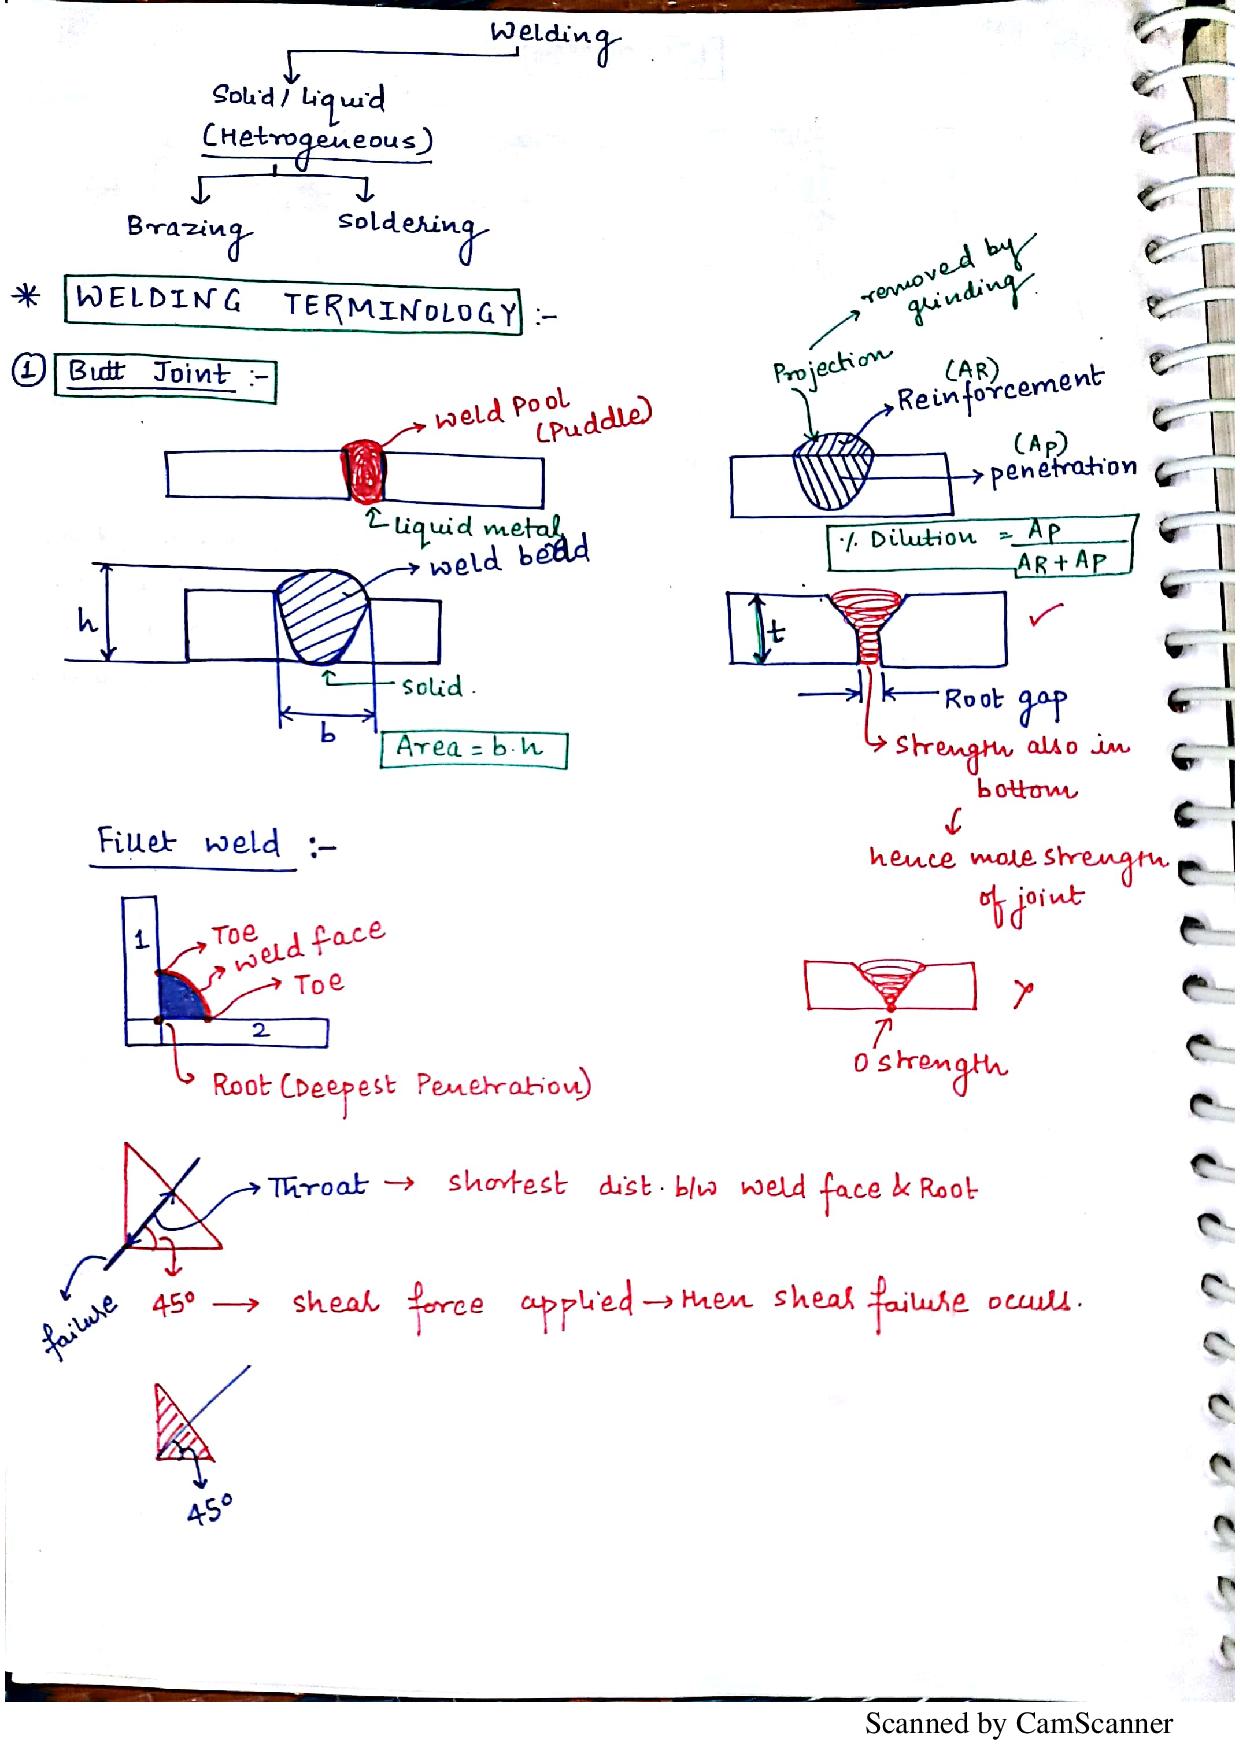 Welding
Solid / Liquid
(Hetrogeneous)
Brazing
Soldering
* WELDING TERMINOLOGY :-
① Butt Joint :-
weld Pool
(Puddle)
Liquid metal
weld bead
h
solid.
b
Area = b.h
removed by
grinding.
Projection
(AR)
Reinforcement
(Ap)
penetration
% Dilution = AP
AR + AP
t
Root gap
strength also in
bottom
hence more strength
of joint
Fillet weld :-
1
Toe
weld face
Toe
2
Root (Deepest Penetration)
0 strength
Throat → shortest dist. b/w weld face & Root
failure
45° → shear force applied → then shear failure occurs.
45°
Scanned by CamScanner